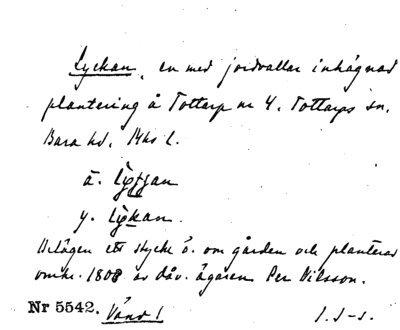 Lyckan, en med jordvallar inhägnad
plantering å Tottarp nr 4, Tottarps sn.
Bara hd, Mhs l.
ä. lyǥǥan
y. lykan.
Belägen ett stycke ö. om gården och planterad
omkr. 1808 av dåv. ägaren Per Nilsson.
Nr 5542. Vänd!
I. J-s.